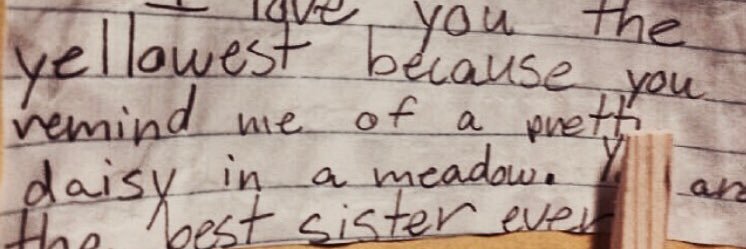 I love you the
yellowest because you
remind me of a prett
daisy in a meadow. Y ar
the best sister ever